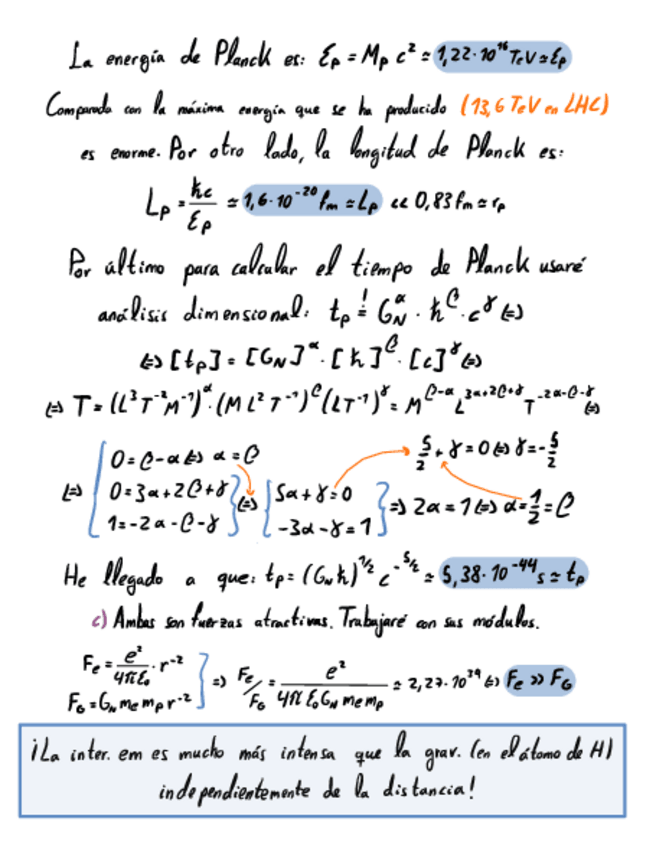 La energía de Planck es: Ɛp = Mp c² ≃ 1,22·10¹⁶ TeV ≃ Ɛp
Comparada con la máxima energía que se ha producido (13,6 TeV en LHC)
es enorme. Por otro lado, la longitud de Planck es:
Lp = ħc/Ɛp ≃ 1,6·10⁻²⁰ fm ≃ Lp << 0,83 fm ≃ rp
Por último para calcular el tiempo de Planck usaré
análisis dimensional: tp =! G_N^α · ħ^β · c^γ ⇔
⇔ [tp] = [G_N]^α · [ħ]^β · [c]^γ ⇔
⇔ T = (L³T⁻²M⁻¹)^α · (ML²T⁻¹)^β (LT⁻¹)^γ = M^(β-α) L^(3α+2β+γ) T^(-2α-β-γ) ⇔
⇔ { 0 = β-α ⇔ α = β
0 = 3α+2β+γ
1 = -2α-β-γ } ⇔ { 5α+γ=0
-3α-γ=1 } ⇒ 2α=1 ⇔ α=1/2=β
5/2+γ=0 ⇔ γ=-5/2
He llegado a que: tp = (G_N ħ)^(1/2) c^(-5/2) ≃ 5,38·10⁻⁴⁴ s ≃ tp
c) Ambas son fuerzas atractivas. Trabajaré con sus módulos.
Fe = e²/4πƐ₀ · r⁻²
FG = G_N me mp r⁻² } ⇒ Fe/FG = e²/4πƐ₀G_N me mp ≃ 2,27·10³⁹ ⇔ Fe >> FG
¡La inter. em es mucho más intensa que la grav. (en el átomo de H)
independientemente de la distancia!